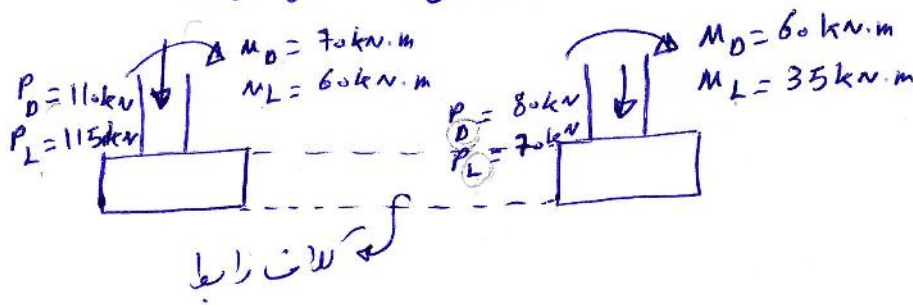 M_D = 70 kN.m
M_L = 60 kN.m
P_D = 110 kN
P_L = 115 kN
M_D = 60 kN.m
M_L = 35 kN.m
P_D = 80 kN
P_L = 70 kN
کلاف رابط